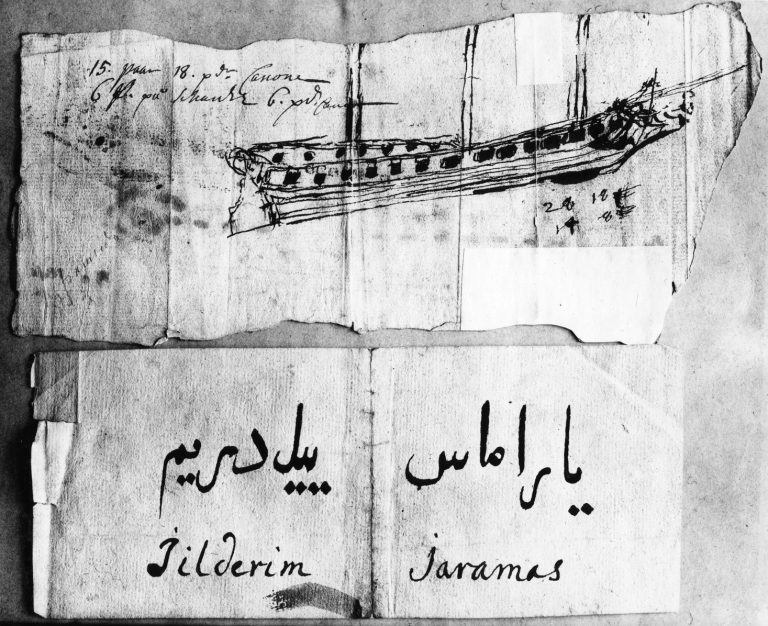 15. paar 18. pdr Canone
6 6. pd:
28 18
14 8
ييلدريم ياراماس
Jilderim Jaramas